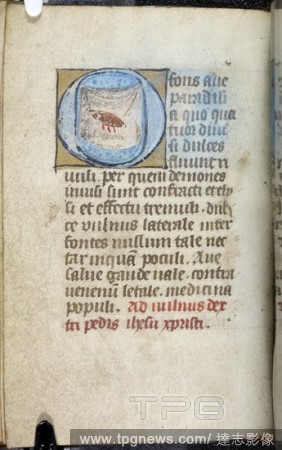 fons aue
paradisi
a quo qua
tuor diue
si dulces
fluunt ri
uuli. per quem demones
inuisi sunt confracti et ely
si et effectu tremuli. dul
ce vulnus laterale inter
fontes nullum tale nec
tar inquam poculi. Aue
salue gaude uale. contra
venenum letale. medicina
populi. Ad vulnus dex
tri pedis ihesu xpristi.
TPG
www.tpgnews.com / 達志影像